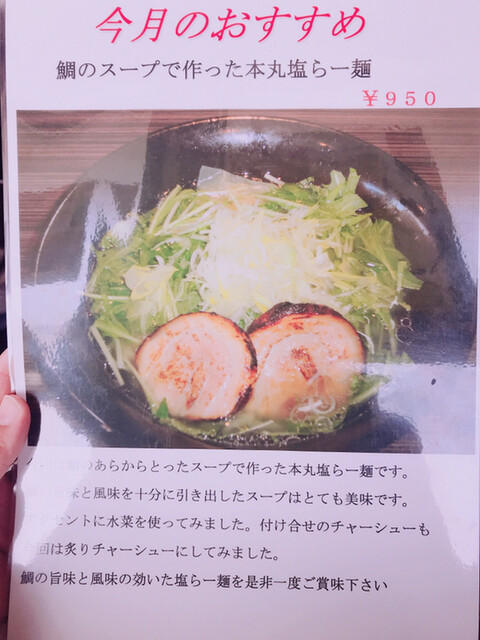 今月のおすすめ
鯛のスープで作った本丸塩らー麺
￥９５０
鯛のあらからとったスープで作った本丸塩らー麺です。
味と風味を十分に引き出したスープはとても美味です。
セントに水菜を使ってみました。付け合せのチャーシューも
回は炙りチャーシューにしてみました。
鯛の旨味と風味の効いた塩らー麺を是非一度ご賞味下さい